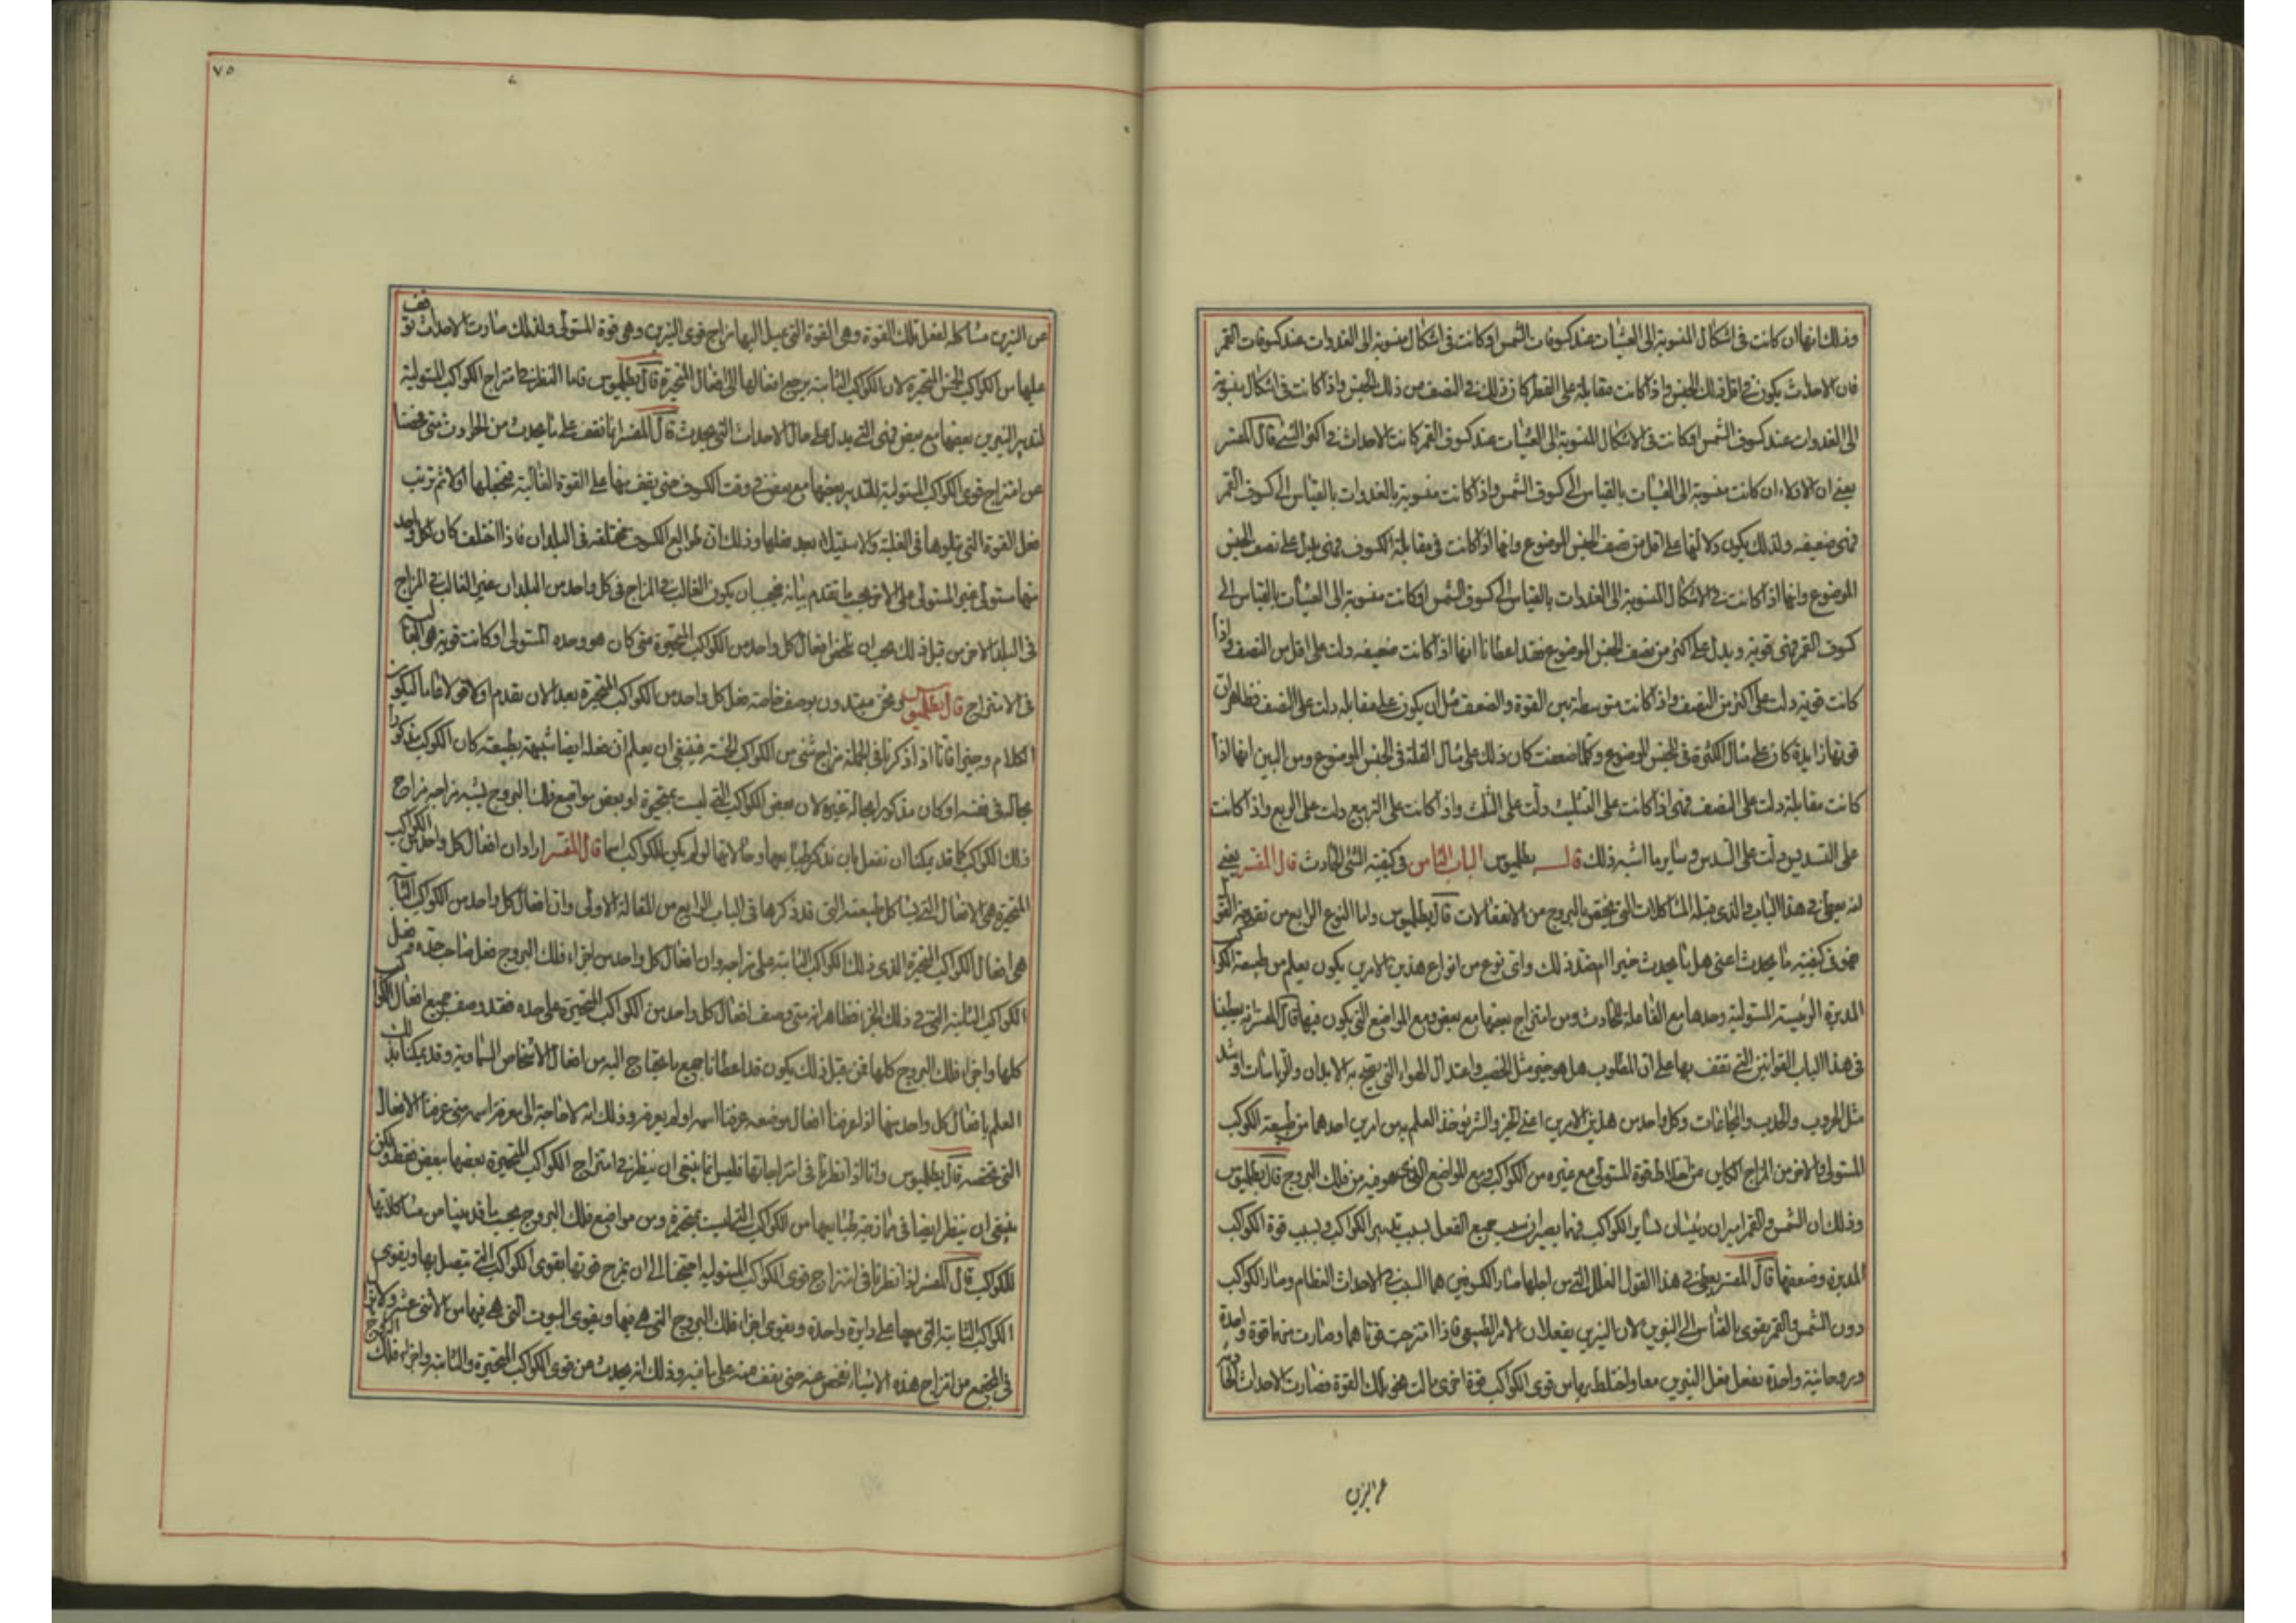 وذلك انها ان كانت فى اشكال المنسوبة الى العشيات عند كسوفات الشمس او كانت فى اشكال منسوبة الى الغدوات عند كسوفات القمر
فان الاحداث يكون فى اقل ذلك الجنس واذا كانت مقابلة على القطر كان ذلك فى النصف من ذلك الجنس واذا كانت فى اشكال منسوبة
الى الغدوات عند كسوف الشمس او كانت فى الاشكال المنسوبة الى العشيات عند كسوف القمر كانت الاحداث فى اكثر الشئ قال المفسر
يعنى ان الاولاد ان كانت منسوبة الى العشيات بالقياس الى كسوف الشمس واذا كانت منسوبة بالغدوات بالقياس الى كسوف القمر
فهى ضعيفه ولذلك يكون دلالتها على اقل من نصف الجنس الموضوع وانها اذا كانت فى مقابلة الكسوف فهى يدل على نصف الجنس
الموضوع وانها اذا كانت فى الاشكال المنسوبة الى الغدوات بالقياس الى كسوف الشمس او كانت منسوبة الى العشيات بالقياس الى
كسوف القمر فهى قوية ويدل على اكثر من نصف الجنس الموضوع فقد اعطانا انها اذا كانت ضعيفه دلت على اقل من النصف واذا
كانت قوية دلت على اكثر من النصف واذا كانت متوسطة بين القوة والضعف مثل ان يكون على مقابله دلت على النصف فظاهر ان
قوتها زايدة كان على مثال الكثرة فى الجنس الموضوع وكلما ضعفت كان ذلك على مثال القلة فى الجنس الموضوع ومن البين انها اذا
كانت مقابلة دلت على النصف فهى اذا كانت على التثليث دلت على الثلث واذا كانت على التربيع دلت على الربع واذا كانت
على التسديس دلت على السدس وساير ما اشبه ذلك قال بطلميوس الباب الثامن فى كيفية الشئ الحادث قال المفسر يعنى
انه يعطى فى هذا الباب والذى قبله المشاكلات التى يختص بالبروج من الانفعالات قال بطلميوس واما النوع الرابع من تقدمة القو
فهو فى كيفية ما يحدث اعنى هل ما يحدث خير ام ضد ذلك واى نوع من انواع هذين الامرين يكون يعلم من طبيعة الكواكب
المدبرة الرئيسة المستولية وحدها مع الفاعلة للحادث ومن امتزاج بعضها مع بعض ومع المواضع التى يكون فيها قال المفسر انه يعطينا
فى هذا الباب القوانين التى تقف بها على ان المطلوب هل هو خير مثل الخصب واعتدال الهواء التى يصح به الابدان والرياسات او شر
مثل الحروب والجدب والمجاعات وكل واحد من هذين الامرين اعنى الخير والشر يوخذ العلم به من امرين احدهما من طبيعة الكوكب
المستولى والاخر من المزاج الكاين من اختلاط قوة المستولى مع غيره من الكواكب ومع المواضع التى هو فيه من فلك البروج قال بطلميوس
وذلك ان الشمس والقمر اميران رئيسان لساير الكواكب فهما يصيران سبب جميع الفعل بسبب تدبير الكواكب وبسبب قوة الكواكب
المدبرة وضعفها قال المفسر يعطى فى هذا القول العلل التى من اجلها صار الكسوفين هما السبب فى الاحداث العظام وصار الكواكب
دون الشمس والقمر يقوى بالقياس الى النيرين لان النيرين يفعلان الامر الطبيعى فاذا امتزجت قوتاهما وصارت منهما قوة واحدة
وبروحانية واحدة يفعل بفعل النيرين معا واختلط بهما من قوى الكواكب قوة اخرى مالت نحو تلك القوة فصارت الاحداث الحادثة
عن النيرين
٧٥
عن النيرين مشاكله لفعل تلك القوة وهى القوة التى يميل اليها مزاج قوى النيرين وهى قوة المستولى ولذلك صارت الاحداث توقف
عليها من الكواكب الخمس المتحيرة لان الكواكب الثابتة يرجع افعالها الى افعال المتحيرة قال بطلميوس فاما النظر فى امتزاج الكواكب المستولية
لتدبير النيرين بعضها مع بعض فهى التى يدل على حال الاحداث التى يحدث قال المفسر انا نقف على ما يحدث من الحوادث متى فحصنا
عن امتزاج قوى الكواكب المستولية للتدبير بعضها مع بعض فى وقت الكسوف حتى يقف منها على القوة الغالبة فنجعلها اولا ثم ترتب
فعل القوة التى يتلوها فى الغلبة والاستيلاء بعد فعلها وذلك ان طوالع الكسوف مختلفه فى البلدان فاذا اختلف كان لكل واحد
منها مستولى غير المستولى على الاخر بحسب ما تقدم بيانه فيجب ان يكون الغالب فى المزاج فى كل واحد من البلدان غير الغالب فى المزاج
فى البلد الاخر من قبل ذلك يجب ان نلخص افعال كل واحد من الكواكب المتحيرة متى كان هو وحده المستولى او كانت قوته هى الغالبة
فى الامتزاج قال بطلميوس ونحن مبتدءون بوصف خاصة فعل كل واحد من الكواكب المتحيرة بعد الان بقدم اولا قولا عاما ليكون
الكلام وجيزا فانا اذا ذكرنا فى الجملة مزاج شئ من الكواكب الخمسة فينبغى ان يعلم ان فعله ايضا شبيهة بطبيعته كان الكوكب مذكورا
بحاله فى نفسه او كان مذكورا بحالة غيره لان بعض الكواكب التى ليست بمتحيرة او بعض مواضع فلك البروج يشبه مزاجه مزاج
ذلك الكوكب كما قد يمكننا ان نفعل بان نذكر طبايعها وحالاتها لو لم يكن للكواكب اسما قال المفسر اراد ان افعال كل واحد من الكواكب
المتحيرة هى الافعال التى يشاكل طبيعته التى قد ذكرها فى الباب الرابع من المقالة الاولى وان افعال كل واحد من الكواكب الثابتة
هى افعال الكواكب المتحيرة الذى ذلك الكواكب الثابتة على مزاجه وان افعال كل واحد من اجزاء فلك البروج فعل صاحب حده
الكواكب الثابتة التى فى ذلك الجزء فظاهر انه متى وصف افعال كل واحد من الكواكب المتحيرة على حده فقد وصف جميع افعال الكواكب
كلها واجزاء فلك البروج كلها فمن قبل ذلك يكون قد اعطانا جميع ما يحتاج اليه من افعال الاشخاص السماوية وقد يمكننا بذلك
العلم بافعال كل واحد منها اذا عرفنا افعال موضعه عرفنا اسمه او لم يعرف وذلك انه لا حاجة الى معرفة اسمه متى عرفنا الافعال
التى تخصه قال بطلميوس وانا اذا نظرنا فى امتزاجاتها فليس انما ينبغى ان ينظر فى امتزاج الكواكب المتحيرة بعضها ببعض فقط ولكن
ينبغى ان ينظر ايضا فى ما زجه طبايعها من الكواكب التى ليست بمتحيرة ومن مواضع فلك البروج بحسب ما قد بينا من مشاكلاتها
للكواكب قال المفسر اذا نظرنا فى امتزاج قوى الكواكب المستولية احتجنا الى ان يمزج قوتها بقوى الكواكب التى يتصل بها وبقوى
الكواكب الثابتة التى معها على دايرة واحدة وبقوى اجزاء فلك البروج التى هى فيها وبقوى البيوت التى هى فيها من الاثنى عشر
فى المجتمع من امتزاج هذه الاشياء نفحص عنه حتى نقف منه على ما فيه وذلك انه يحدث من قوى الكواكب المتحيرة والثابتة واجزاء فلك البروج